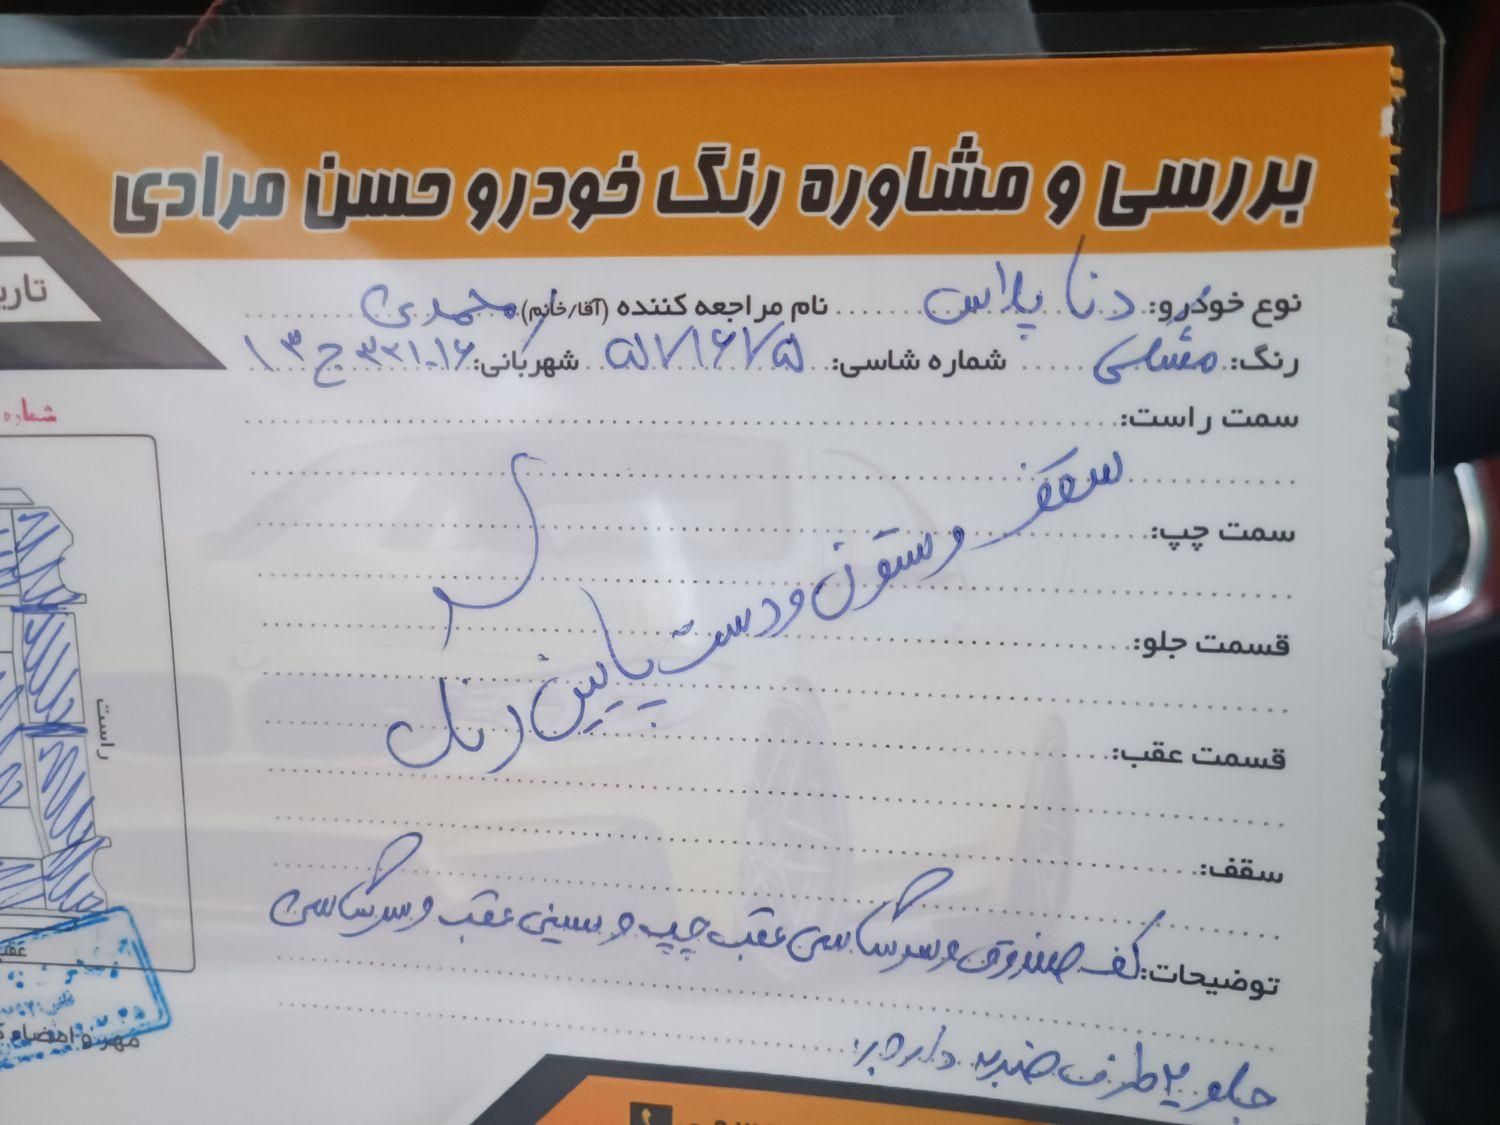 بررسی و مشاوره رنگ خودرو حسن مرادی
نوع خودرو: دنا پلاس نام مراجعه کننده (آقا/خانم) محمدی
رنگ: مشکی شماره شاسی: ۵۷۱۶۷۵ شهربانی: ۱۶-۳۲۱ ج ۱۳
سمت راست:
سمت چپ:
قسمت جلو:
قسمت عقب:
سقف:
سقف و ستون و دست پایین رنگ
توضیحات: کف صندوق و سرشاسی عقب چپ و سینی عقب و سرشاسی
جلو ۲ طرف ضربه دارد
تاری
شماره
راست
عقب
مهر و امضاء